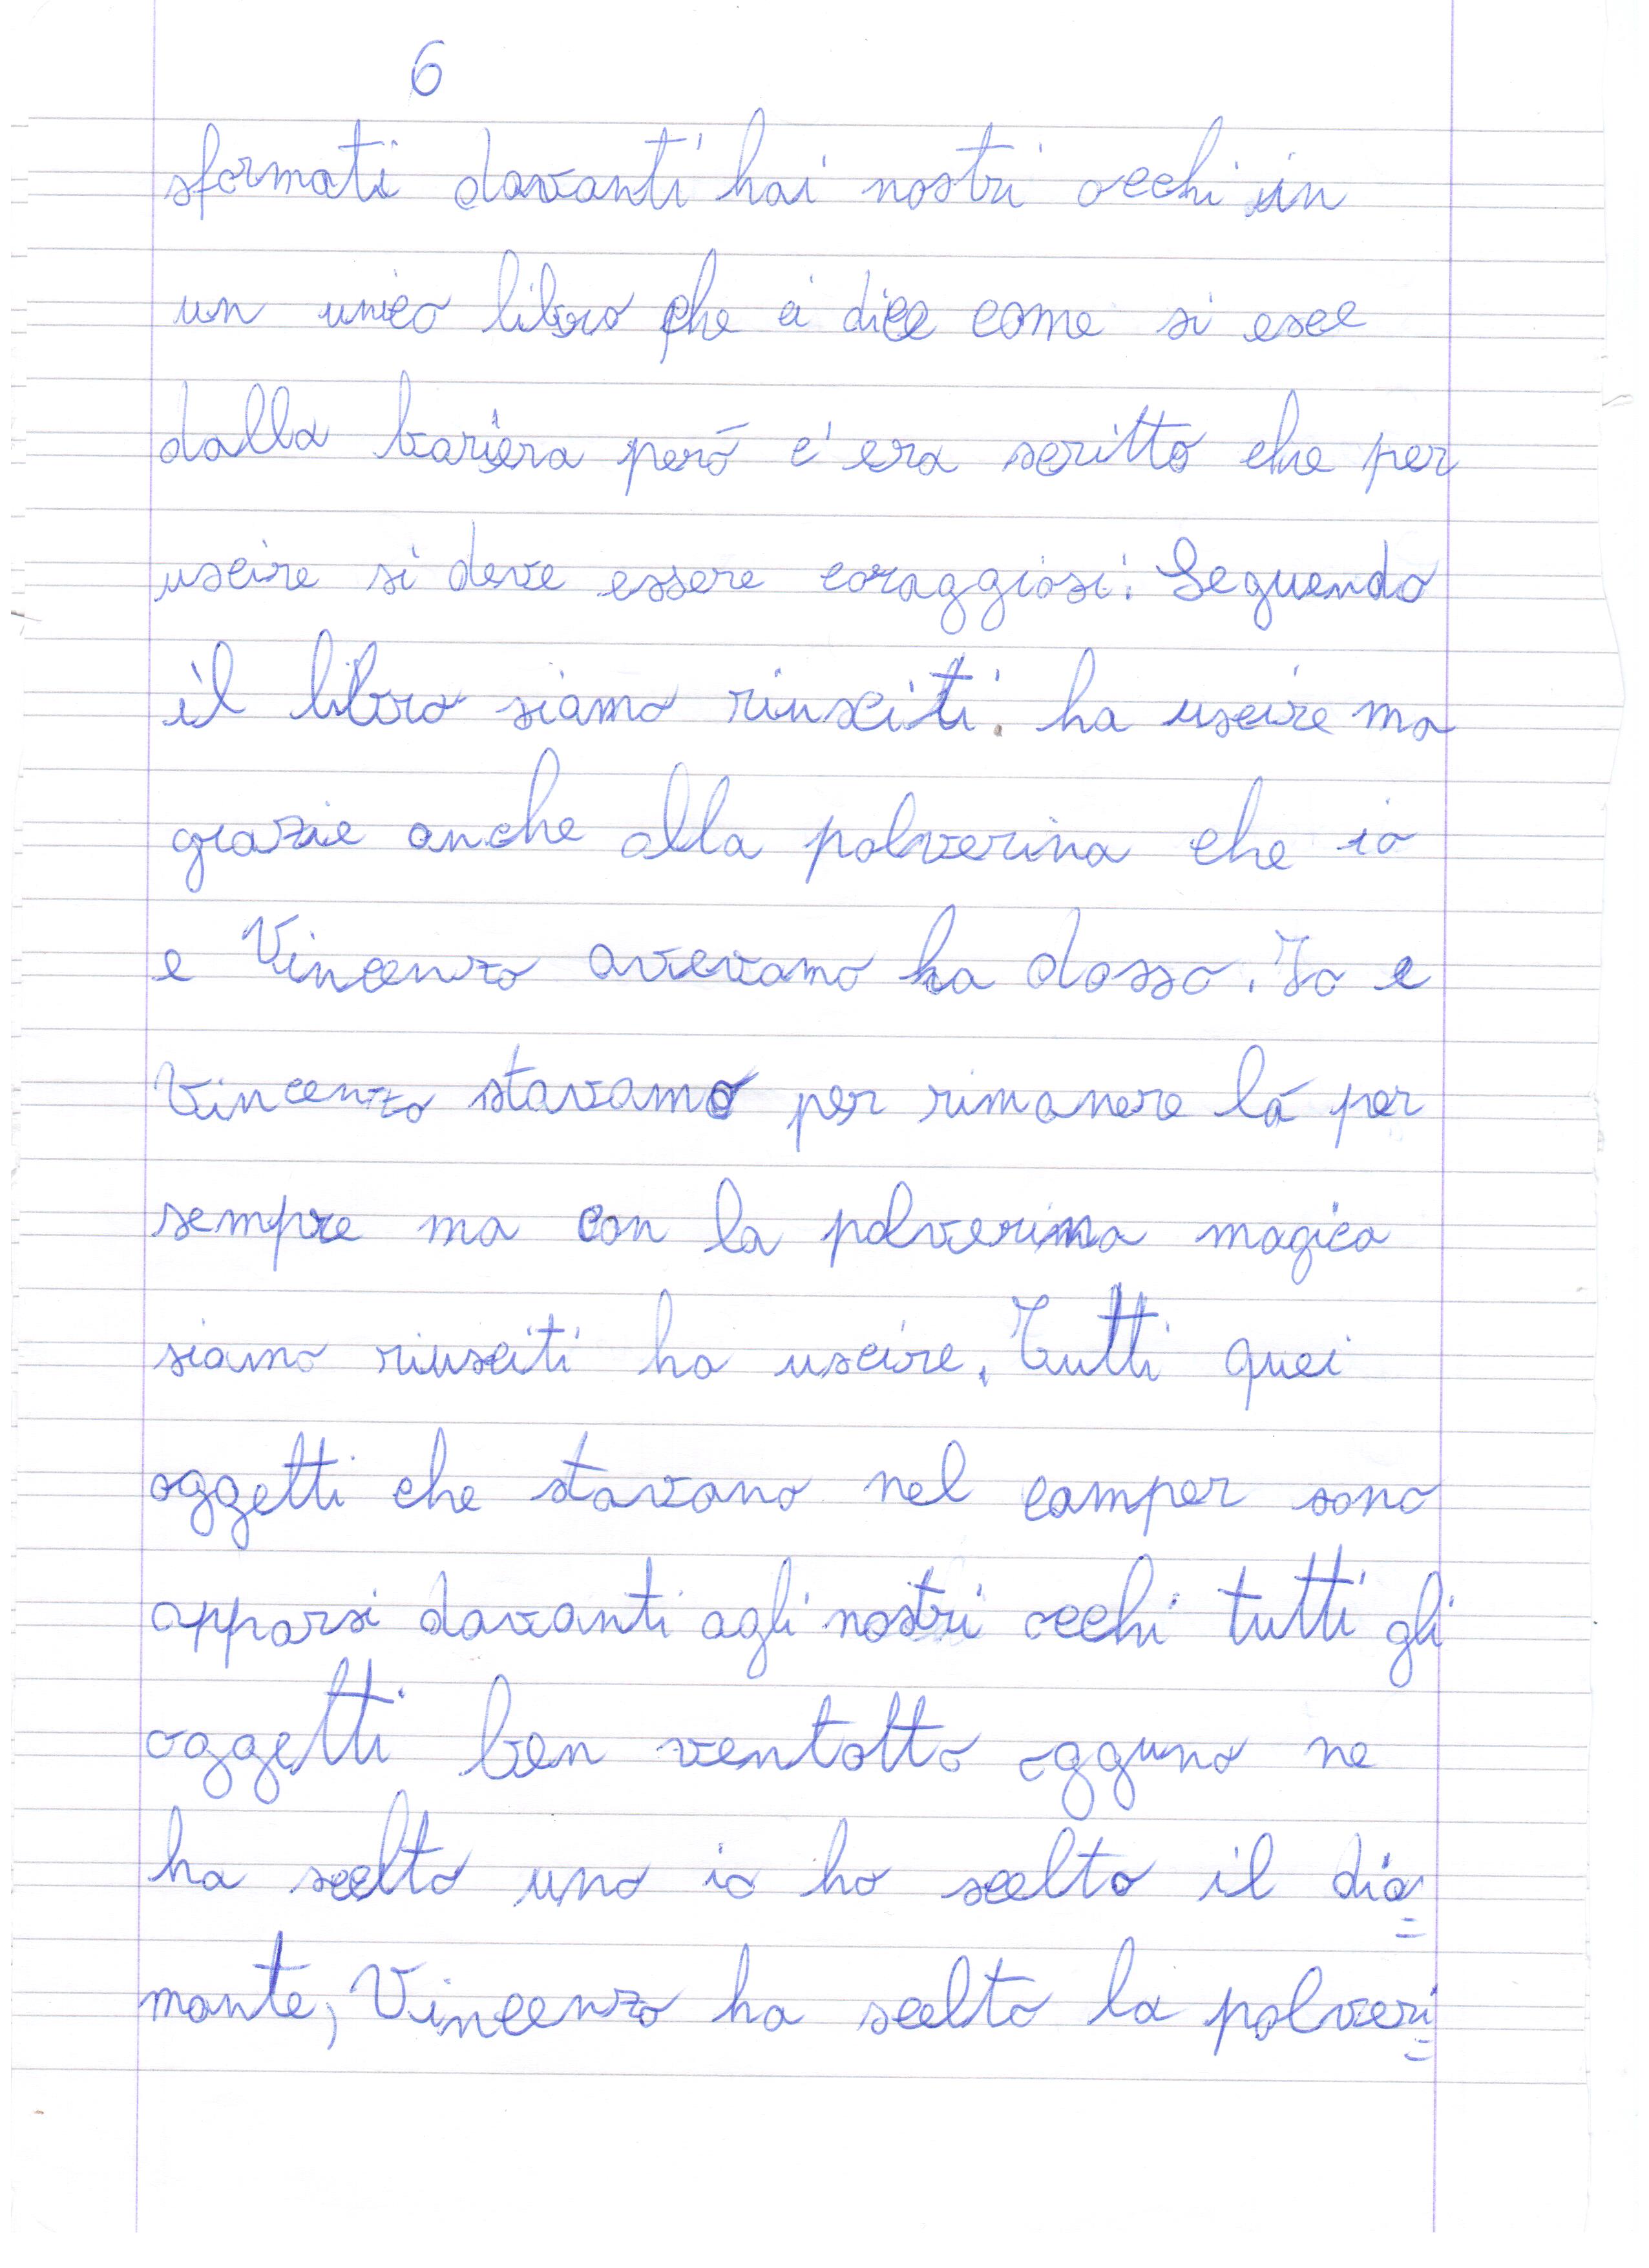 6
sformati davanti hai nostri occhi in
un unico libro che ci dice come si esce
dalla bariera però c'era scritto che per
uscire si deve essere coraggiosi. Seguendo
il libro siamo riusciti. ha uscire ma
grazie anche alla polverina che io
e Vincenzo avevamo ha dosso. Io e
Vincenzo stavamo per rimanere là per
sempre ma con la polverina magica
siamo riusciti ha uscire. Tutti quei
oggetti che stavano nel camper sono
apparsi davanti agli nostri occhi tutti gli
oggetti ben ventotto ogguno ne
ha scelto uno io ho scelto il dia=
mante, Vincenzo ha scelto la polveri=